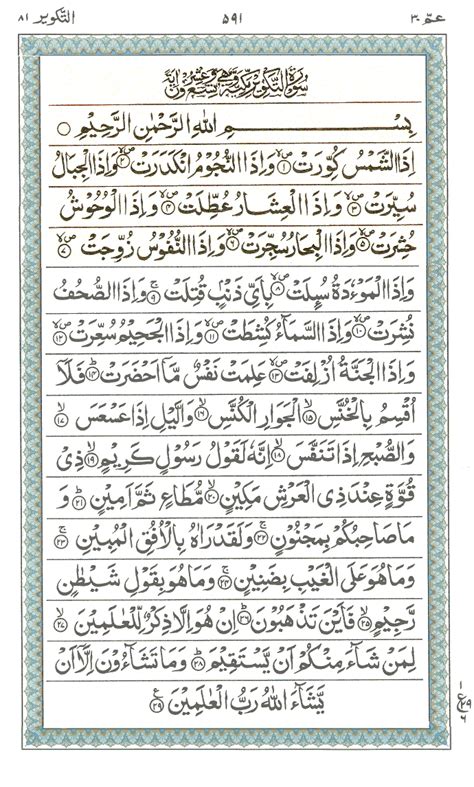 عمّ ٣٠ ٥٩١ التكوير ٨١
سُوْرَةُ التَّكْوِيْرِ مَكِّيَّةٌ وَّهِيَ تِسْعٌ وَّعِشْرُوْنَ اٰيَةً
بِسْمِ اللّٰهِ الرَّحْمٰنِ الرَّحِيْمِ
اِذَا الشَّمْسُ كُوِّرَتْ ۪ۙ‏١ وَاِذَا النُّجُوْمُ انْكَدَرَتْ ۪ۙ‏٢ وَاِذَا الْجِبَالُ
سُيِّرَتْ ۪ۙ‏٣ وَاِذَا الْعِشَارُ عُطِّلَتْ ۪ۙ‏٤ وَاِذَا الْوُحُوْشُ
حُشِرَتْ ۪ۙ‏٥ وَاِذَا الْبِحَارُ سُجِّرَتْ ۪ۙ‏٦ وَاِذَا النُّفُوْسُ زُوِّجَتْ ۪ۙ‏٧
وَاِذَا الْمَوْءٗدَةُ سُىِٕلَتْ ۪ۙ‏٨ بِاَيِّ ذَنْۢبٍ قُتِلَتْ ۚ‏٩ وَاِذَا الصُّحُفُ
نُشِرَتْ ۪ۙ‏١٠ وَاِذَا السَّمَآءُ كُشِطَتْ ۪ۙ‏١١ وَاِذَا الْجَحِيْمُ سُعِّرَتْ ۪ۙ‏١٢
وَاِذَا الْجَنَّةُ اُزْلِفَتْ ۪ۙ‏١٣ عَلِمَتْ نَفْسٌ مَّاۤ اَحْضَرَتْ ؕ‏١٤ فَلَاۤ
اُقْسِمُ بِالْخُنَّسِ ۙ‏١٥ الْجَوَارِ الْكُنَّسِ ۙ‏١٦ وَالَّيْلِ اِذَا عَسْعَسَ ۙ‏١٧
وَالصُّبْحِ اِذَا تَنَفَّسَ ۙ‏١٨ اِنَّهٗ لَقَوْلُ رَسُوْلٍ كَرِيْمٍ ۙ‏١٩ ذِيْ
قُوَّةٍ عِنْدَ ذِي الْعَرْشِ مَكِيْنٍ ۙ‏٢٠ مُّطَاعٍ ثَمَّ اَمِيْنٍ ؕ‏٢١ وَ
مَا صَاحِبُكُمْ بِمَجْنُوْنٍ ۚ‏٢٢ وَلَقَدْ رَاٰهُ بِالْاُفُقِ الْمُبِيْنِ ۚ‏٢٣
وَمَا هُوَ عَلَى الْغَيْبِ بِضَنِيْنٍ ۚ‏٢٤ وَمَا هُوَ بِقَوْلِ شَيْطٰنٍ
رَّجِيْمٍ ۙ‏٢٥ فَاَيْنَ تَذْهَبُوْنَ ؕ‏٢٦ اِنْ هُوَ اِلَّا ذِكْرٌ لِّلْعٰلَمِيْنَ ۙ‏٢٧
لِمَنْ شَآءَ مِنْكُمْ اَنْ يَّسْتَقِيْمَ ؕ‏٢٨ وَمَا تَشَآءُوْنَ اِلَّاۤ اَنْ
يَّشَآءَ اللّٰهُ رَبُّ الْعٰلَمِيْنَ ‏٢٩
١
ع ٢٩
٦